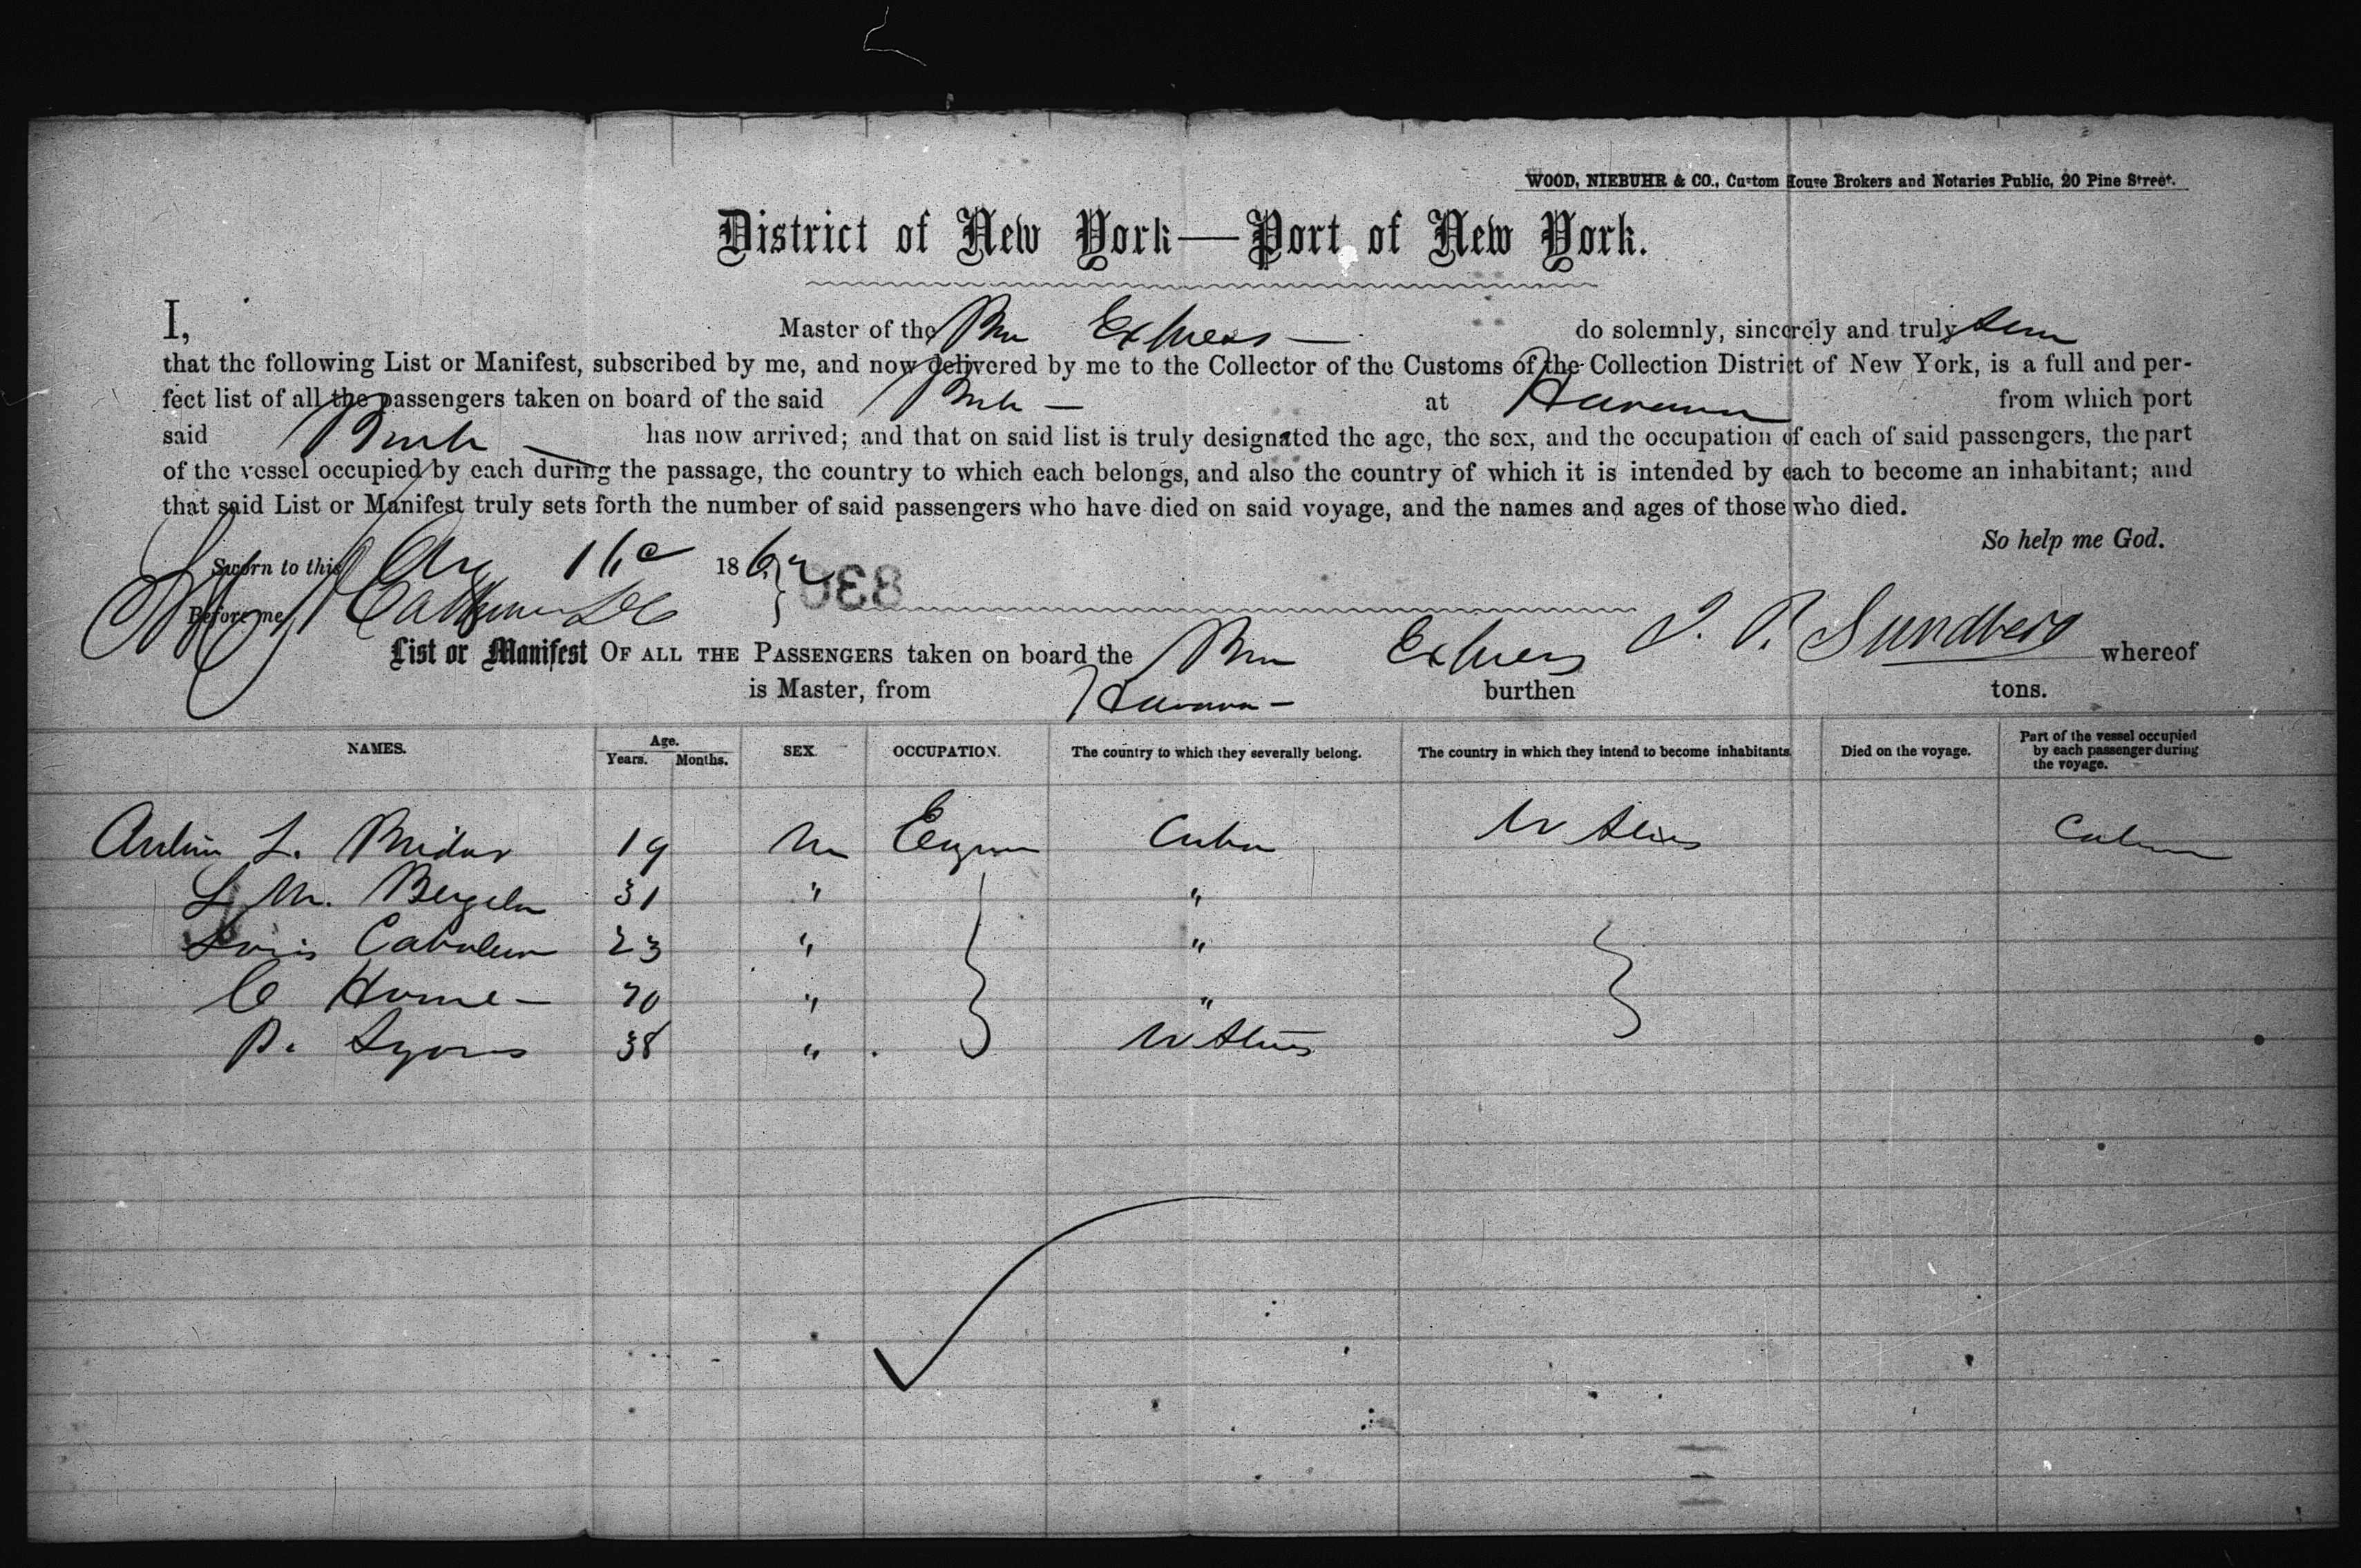 WOOD, NIEBUHR & CO., Custom House Brokers and Notaries Public, 20 Pine Street.
District of New York—Port of New York.
I, Master of the Express — do solemnly, sincerely and truly
that the following List or Manifest, subscribed by me, and now delivered by me to the Collector of the Customs of the Collection District of New York, is a full and per-
fect list of all the passengers taken on board of the said — at Havana from which port
said — has now arrived; and that on said list is truly designated the age, the sex, and the occupation of each of said passengers, the part
of the vessel occupied by each during the passage, the country to which each belongs, and also the country of which it is intended by each to become an inhabitant; and
that said List or Manifest truly sets forth the number of said passengers who have died on said voyage, and the names and ages of those who died.
So help me God.
Sworn to this Aug 186
830
Before me
J. P. Sundberg
List or Manifest OF ALL THE PASSENGERS taken on board the Express whereof
is Master, from Havana — burthen tons.
NAMES. Age. Years. Months. SEX. OCCUPATION. The country to which they severally belong. The country in which they intend to become inhabitants Died on the voyage. Part of the vessel occupied by each passenger during the voyage.
L. 19 M Cuba U States Cabin
L M. 31 " "
Louis 23 " "
C Horne — 20 " "
P. Lyons 38 " U States